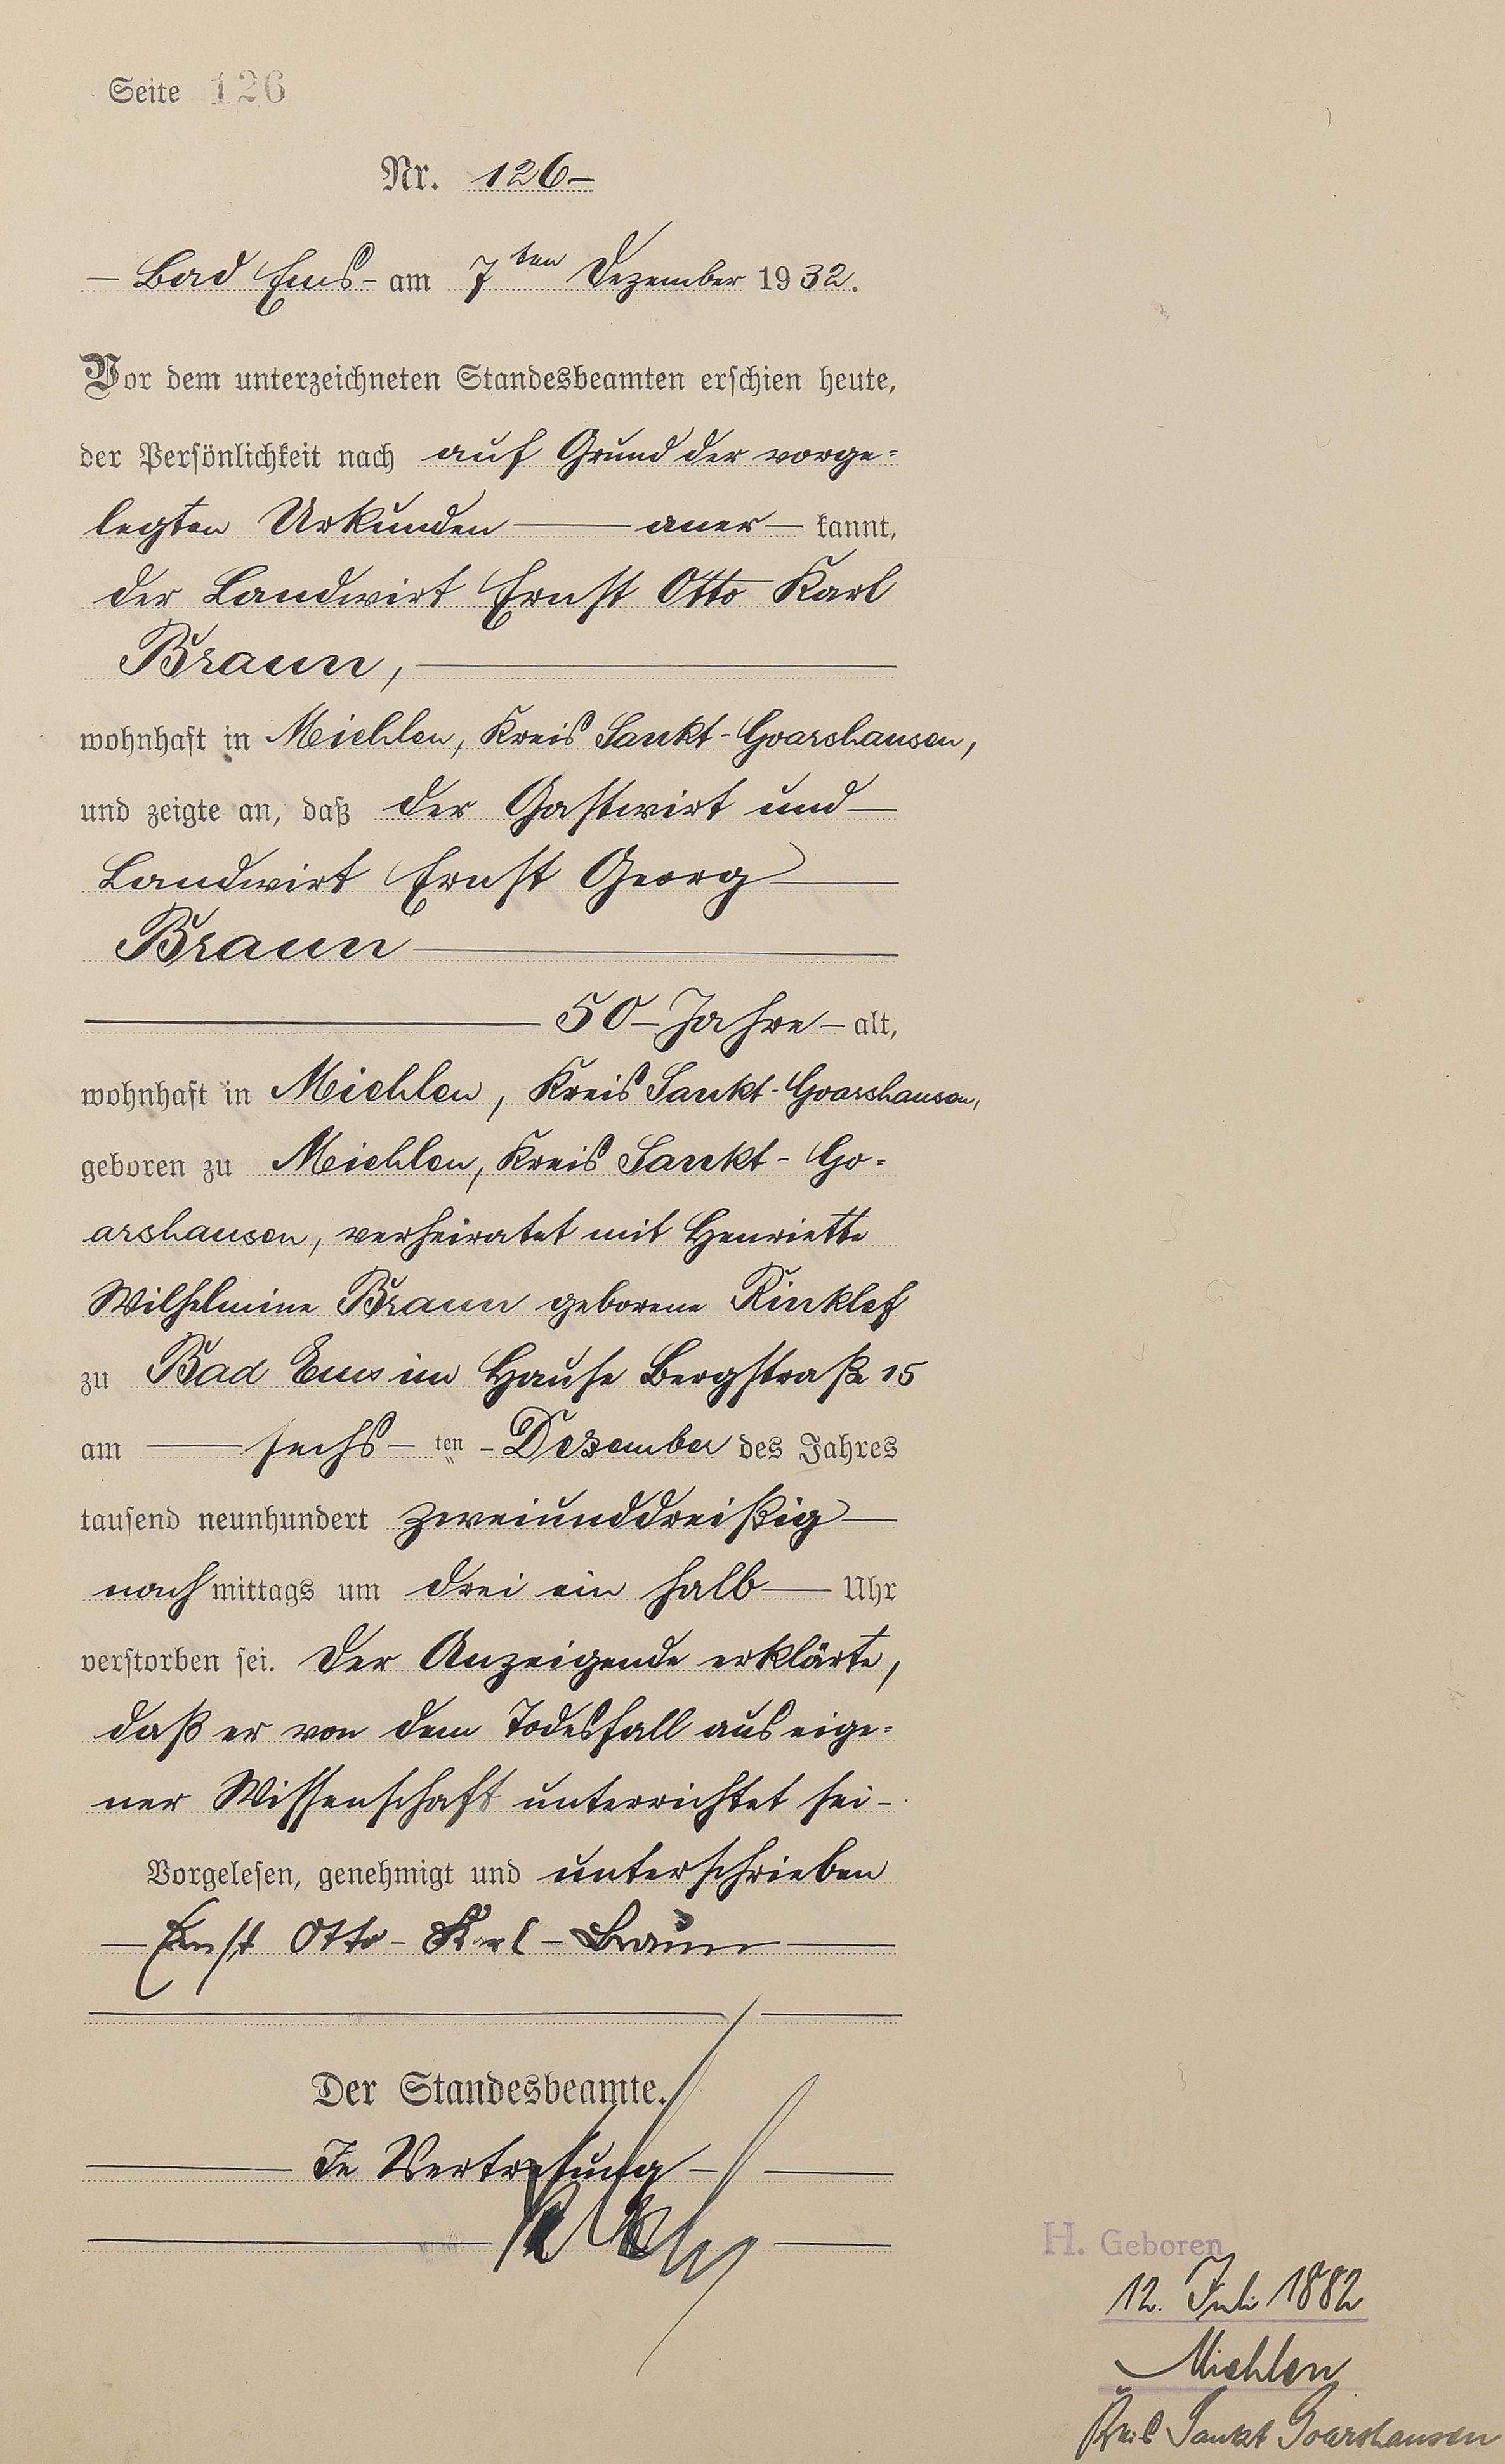 Seite 126
Nr. 126-
- Bad Ems - am 7ten Dezember 1932.
Vor dem unterzeichneten Standesbeamten erschien heute,
der Persönlichkeit nach auf Grund der vorge=
legten Urkunden — aner — kannt,
der Landwirt Ernst Otto Karl
Braun, —
wohnhaft in Miehlen, Kreis Sankt-Goarshausen,
und zeigte an, daß der Gastwirt und —
Landwirt Ernst Georg —
Braun —
— 50 - Jahre - alt,
wohnhaft in Miehlen, Kreis Sankt-Goarshausen,
geboren zu Miehlen, Kreis Sankt-Go=
arshausen, verheiratet mit Henriette
Wilhelmine Braun geborene Rinklef
zu Bad Ems im Hause Bergstraße 15
am — sechs - ten - Dezember des Jahres
tausend neunhundert zweiunddreißig —
nachmittags um drei ein halb — Uhr
verstorben sei. Der Anzeigende erklärte,
daß er von dem Todesfall aus eige=
ner Wissenschaft unterrichtet sei -.
Vorgelesen, genehmigt und unterschrieben
— Ernst Otto - Karl - Braun —
Der Standesbeamte.
— In Vertretung —
H. Geboren
12. Juli 1882
Miehlen
Kreis Sankt Goarshausen